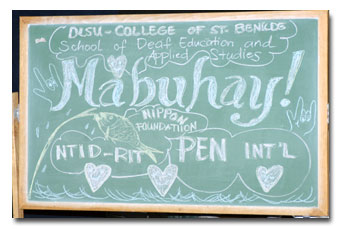 DLSU-COLLEGE OF ST. BENILDE
School of Deaf Education and
Applied Studies
Mabuhay!
NIPPON
FOUNDATION
NTID-RIT PEN INT'L